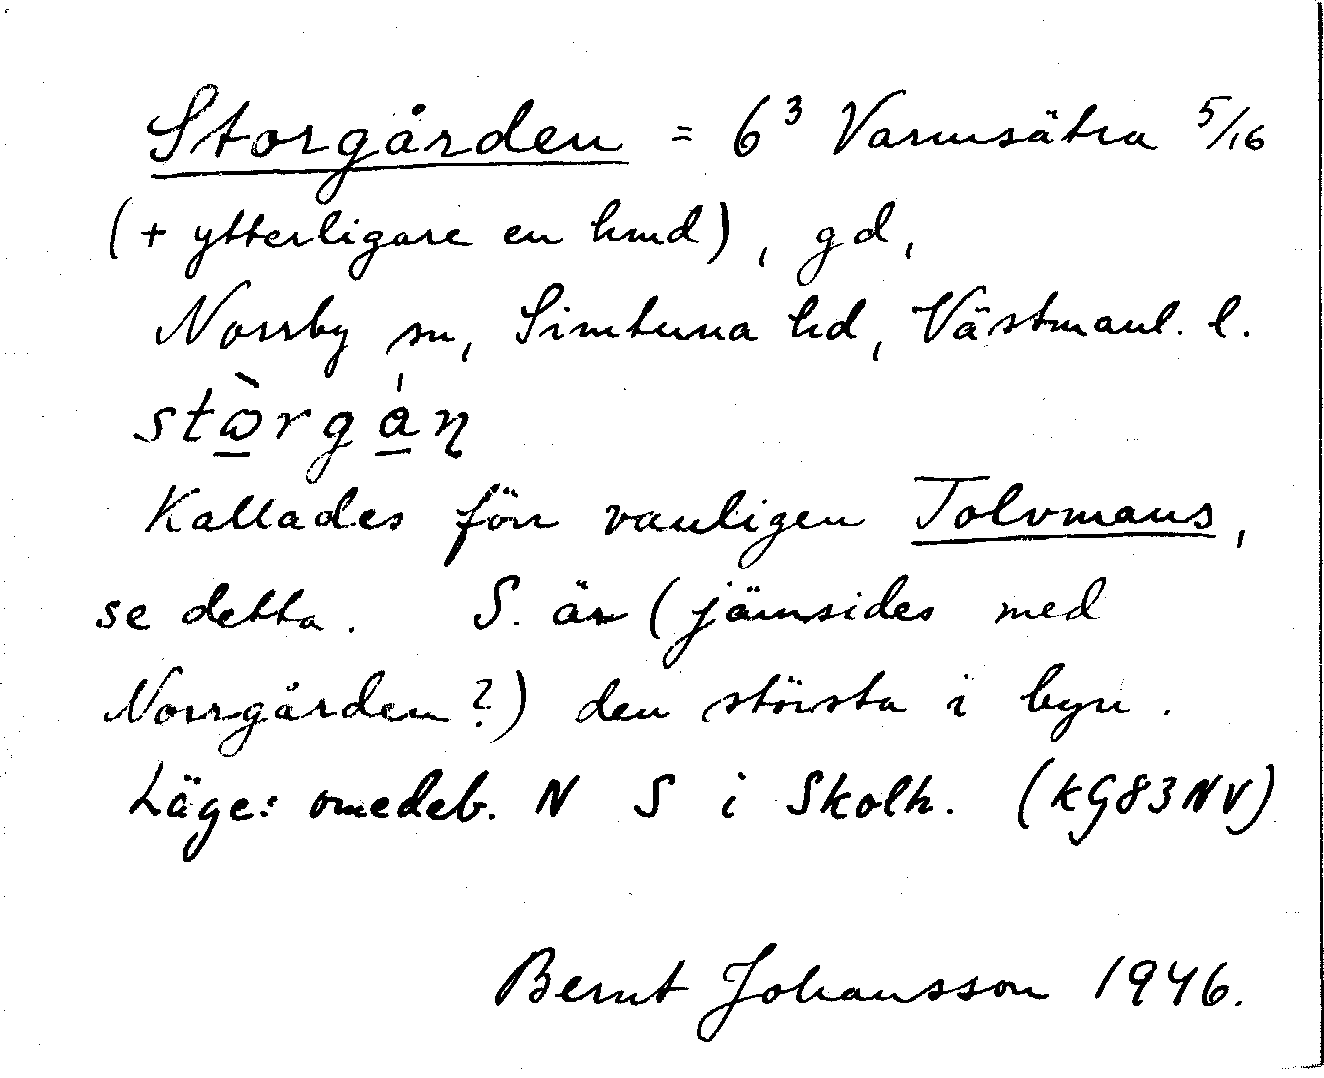 Storgården = 6³ Varmsätra 5/16
(+ ytterligare en hmd), gd,
Norrby sn, Simtuna hd, Västmanl. l.
stɷ̀rgáɳ
Kallades förr vanligen Tolvmans,
se detta. S. är (jämsides med
Norrgården?) den största i byn.
Läge: omedeb. N S i Skolh. (kG83NV)
Bernt Johansson 1946.